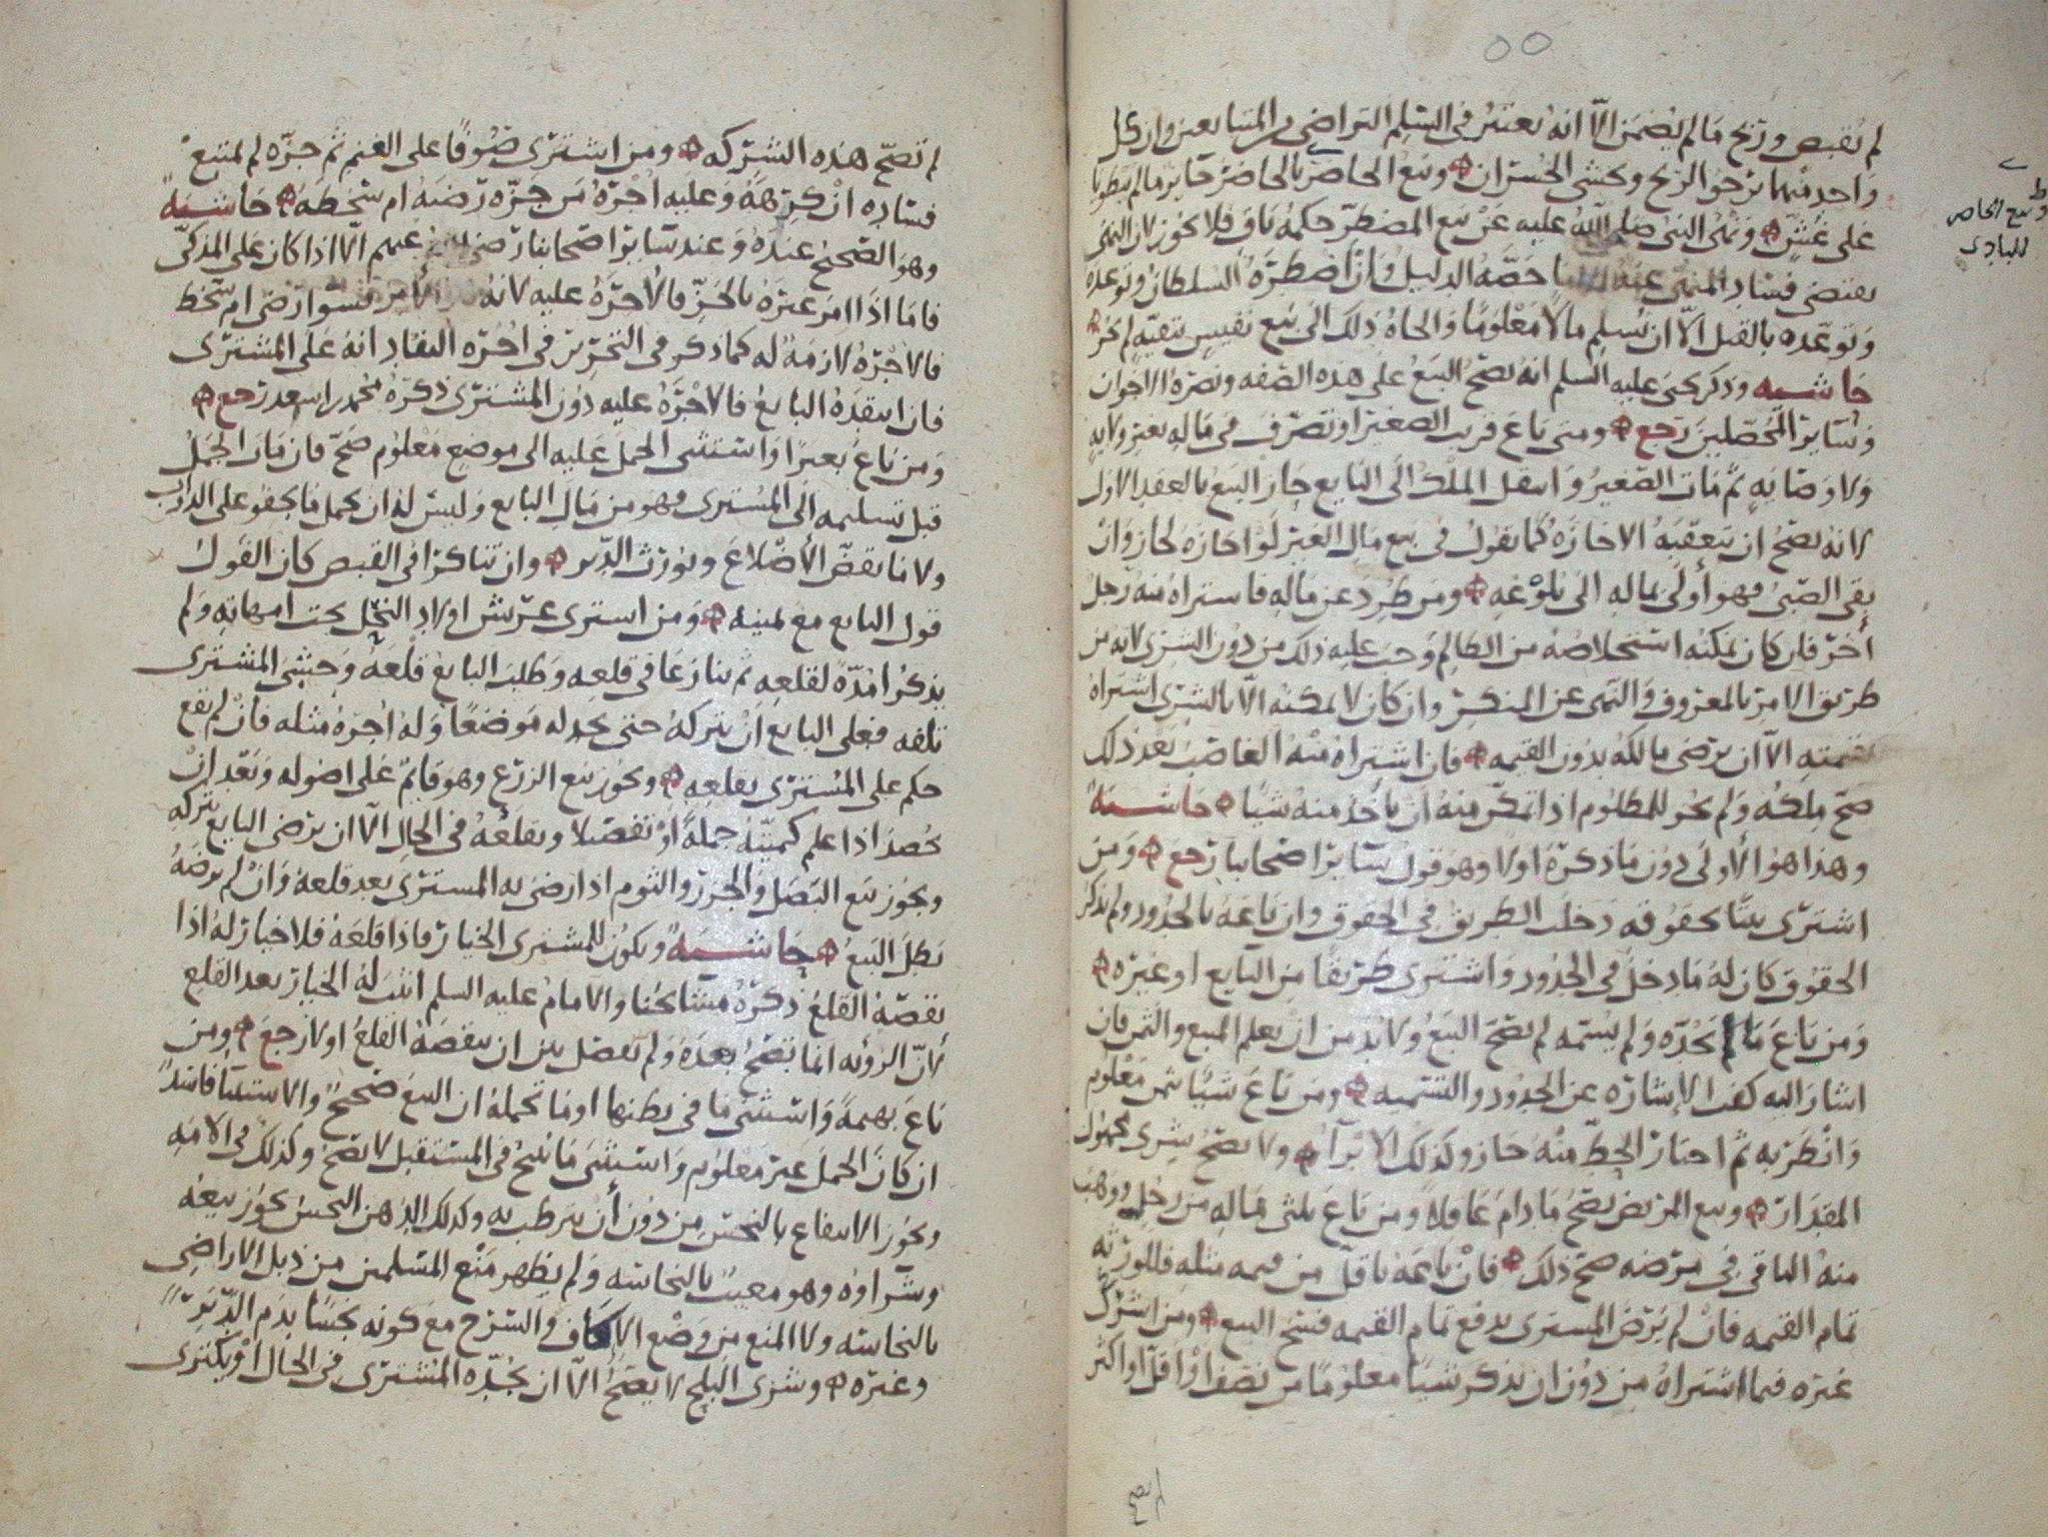 ٥٥
لم يقبض وربح ما لم يضمن الا انه يعتبر في السلم التراضي من المتبايعين وان كل
واحد منهما يرجو الربح ويخشى الخسران وبيع الحاضر بالحاضر جايز ما لم ينطويا
على غش ونهى النبي صلى الله عليه عن بيع المضطر حكمه باق فلا يجوز لان النهي
يقتضي فساد المنهي عنه الا ما خصه الدليل وان اضطره السلطان وتوعده
وتوعده بالقتل الا ان يسلم مالا معلوما والجاه ذلك الى بيع نفيس بتفيه لم يجز
حاشيه وذكر يحيى عليه السلم انه يصح البيع على هذه الصفه ونصره الاخوان
وساير المحصلين رجع ومتى باع قريب الصغير او تصرف في ماله بغير ولايه
ولا وصايه ثم مات الصغير وانتقل الملك الى البايع جاز البيع بالعقد الاول
لانه يصح ان يتعقبه الاجازه كما نقول في بيع مال الغير لو اجازه لجاز وان
بقي الصبي فهو أولى بماله الى بلوغه ومن طرد عن ماله فاستراه منه رجل
أخر فان كان يمكنه استخلاصه من الظالم وجب عليه ذلك من دون الشرى لانه من
طريق الامر بالمعروف والنهي عن المنكر وان كان لا يمكنه الا بالشرى اشتراه
بقيمته الا ان يرضى مالكه بدون القيمه فان اشتراه منه الغاصب بعد ذلك
صح ملكه ولم يجز للمظلوم اذا تمكن منه ان يأخذ منه شيا حاشيه
وهذا هو الأولى دون ما ذكره اولا وهو قول ساير اصحابنا رجع ومن
اشترى بيتا بحقوقه دخلت الطريق في الحقوق وان باعه بالحدود ولم يذكر
الحقوق كان له ما دخل في الحدود واشترى طريقا من البايع او غيره
ومن باع ما لم يحده ولم يسمه لم يصح البيع ولا بد من ان يعلم المبيع والثمن فان
اشار اليه كفت الإشاره عن الحدود والتسميه ومن باع شيا بثمن معلوم
وانظر به ثم اختار الحط منه جاز وكذلك الابرآء ولا يصح شرى مجهول
المقدار وبيع المريض يصح ما دام عاقلا ومن باع ثلثي ماله من رجل ووهب
منه الباقي في مرضه صح ذلك فان باعه باقل من قيمه مثله فللورثه
تمام القيمه فان لم يرض المسترى بدفع تمام القيمه فسخ البيع ومن اشرك
غيره فيما اشتراه من دون ان يذكر شيا معلوما من نصف او اقل او اكثر
وبيع الحاضر
للبادي
لم تصح
لم تصح هذه الشركه ومن اشترى صوفا على الغنم ثم جزه لم يمنع
فساده ان كرهه وعليه اجرة من جزه رضيه ام سخطه حاشيه
وهو الصحيح عنده وعند ساير اصحابنا رضي عنهم الا اذا كان على المذكي
فاما اذا امر غيره بالجز فالاجره عليه لانه الأمر فسوا رضي ام سخط
فالاجره لازمه له كما ذكر في التحرير في اجره النقاد انه على المشترى
فان انتقده البايع فالاجره عليه دون المشترى ذكره محمد بن اسعد رجع
ومن باع بعيرا واستثنى الحمل عليه الى موضع معلوم صح فان مات الجمل
قبل تسليمه الى المسترى فهو من مال البايع وليس له ان يحمل ما يجفو على الدواب
ولا ما يقض الأضلاع ويورث الدبر وان تناكرا في القبض كان القول
قول البايع مع يمينه ومن استرى غرس اولاد النخل تحت امهاته ولم
يذكرا مدة لقلعه ثم تنازعا في قلعه وطلب البايع قلعه وخشي المشترى
تلفه فعلى البايع ان يتركه حتى يجد له موضعا وله اجره مثله فان لم يقع
حكم على المسترى بقلعه ويجوز بيع الزرع وهو قايم على اصوله وبعد ان
يحصد اذا علم كميته جملة او تفصيلا ويقلعه في الحال الا ان يرضى البايع بتركه
ويجوز بيع البصل والجزر والثوم اذا رضي به المسترى بعد قلعه وان لم يرضه
بطل البيع حاشيه ويكون للمشترى الخيار فاذا قلعه فلا خيار له اذا
نقصه القلع ذكره مشايخنا والامام عليه السلم اثبت له الخيار بعد القلع
لأن الرؤيه انما تصح بعده ولم يفصل بين ان ينقصه القلع او لا رجع ومن
باع بهيمة واستثنى ما في بطنها او ما تحمله ان البيع صحيح والاستثنا فاسد
ان كان الحمل غير معلوم واستثنى ما ينتج في المستقبل لا يصح وكذلك في الامه
ويجوز الانتفاع بالنجس من دون أن يترطب به وكذلك الدهن النجس يجوز بيعه
وشراوه وهو معيب بالنجاسه ولم يظهر منع المسلمين من ذبل الاراضي
بالنجاسه ولا المنع من وضع الإكاف والسرج مع كونه نجسا بدم الدبره
وغيره وشرى البلح لا يصح الا ان يجده المشترى في الحال او يكترى